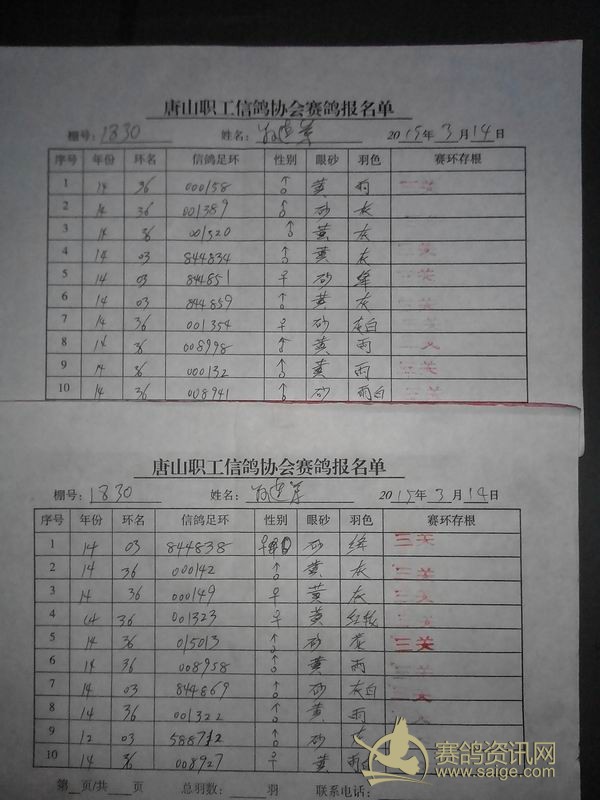 唐山职工信鸽协会赛鸽报名单
棚号: 1830 姓名: 2015年3月14日
序号 年份 环名 信鸽足环 性别 眼砂 羽色 赛环存根
1 14 36 000158 ♂ 黄 雨
2 14 36 001389 ♂ 砂 灰
3 14 36 001520 ♂ 黄 灰
4 14 03 844834 ♂ 黄 灰
5 14 03 844851 ♀ 砂 绛
6 14 03 844859 ♂ 黄 灰
7 14 36 001354 ♀ 砂 灰白
8 14 36 008998 ♂ 黄 雨
9 14 36 000132 ♂ 黄 雨
10 14 36 008941 ♂ 砂 雨白 三关
唐山职工信鸽协会赛鸽报名单
棚号: 1830 姓名: 2015年3月14日
序号 年份 环名 信鸽足环 性别 眼砂 羽色 赛环存根
1 14 03 844838 砂 绛 三关
2 14 36 000142 ♂ 黄 灰 三关
3 14 36 000149 ♀ 黄 灰 三关
4 14 36 001323 ♀ 黄
5 14 36 015013 ♂ 砂 三关
6 14 36 008958 ♂ 黄 雨 三关
7 14 03 844869 ♂ 砂 灰白 三关
8 14 36 001322 ♂ 黄 雨
9 12 03 588712 ♂ 砂
10 14 36 008927 ♀ 黄
第 页/共 页 总羽数: 羽 联系电话:
赛鸽资讯网
www.saige.com